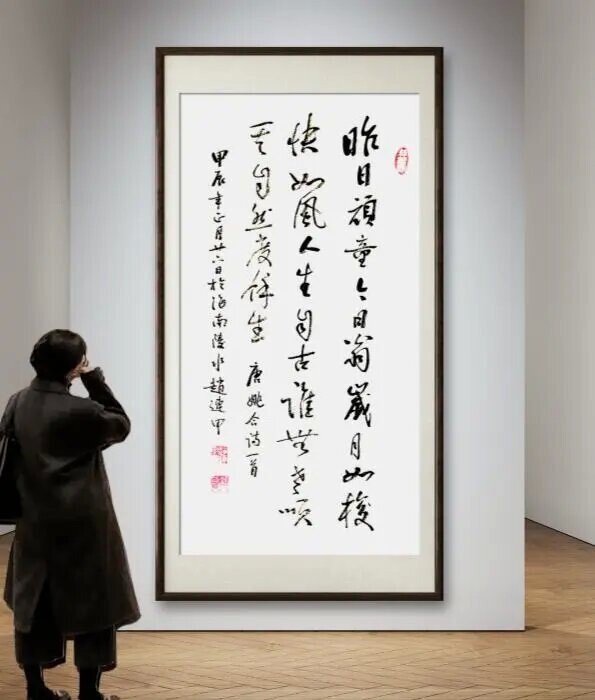 昨日頑童今日翁歲月如梭
快如風人生自古誰無老順
其自然度餘生 唐姚合诗一首
甲辰年正月廿六日於海南陵水趙連甲